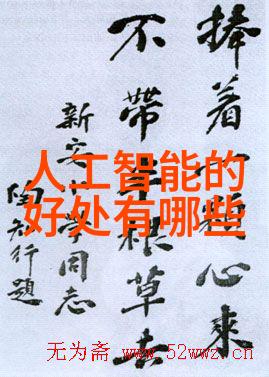 捧着一顆心來
不帶半根草去
新安小學同志
陶知行題
人工智能的
好处有哪些
无为斋 www.52wwz.cn